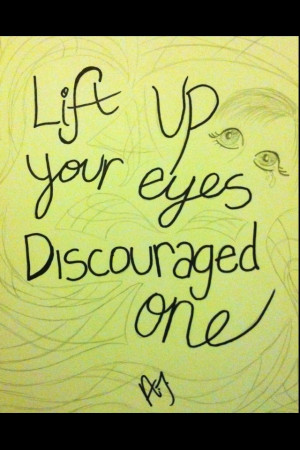 Lift up
your eyes
Discouraged
one
A.J.